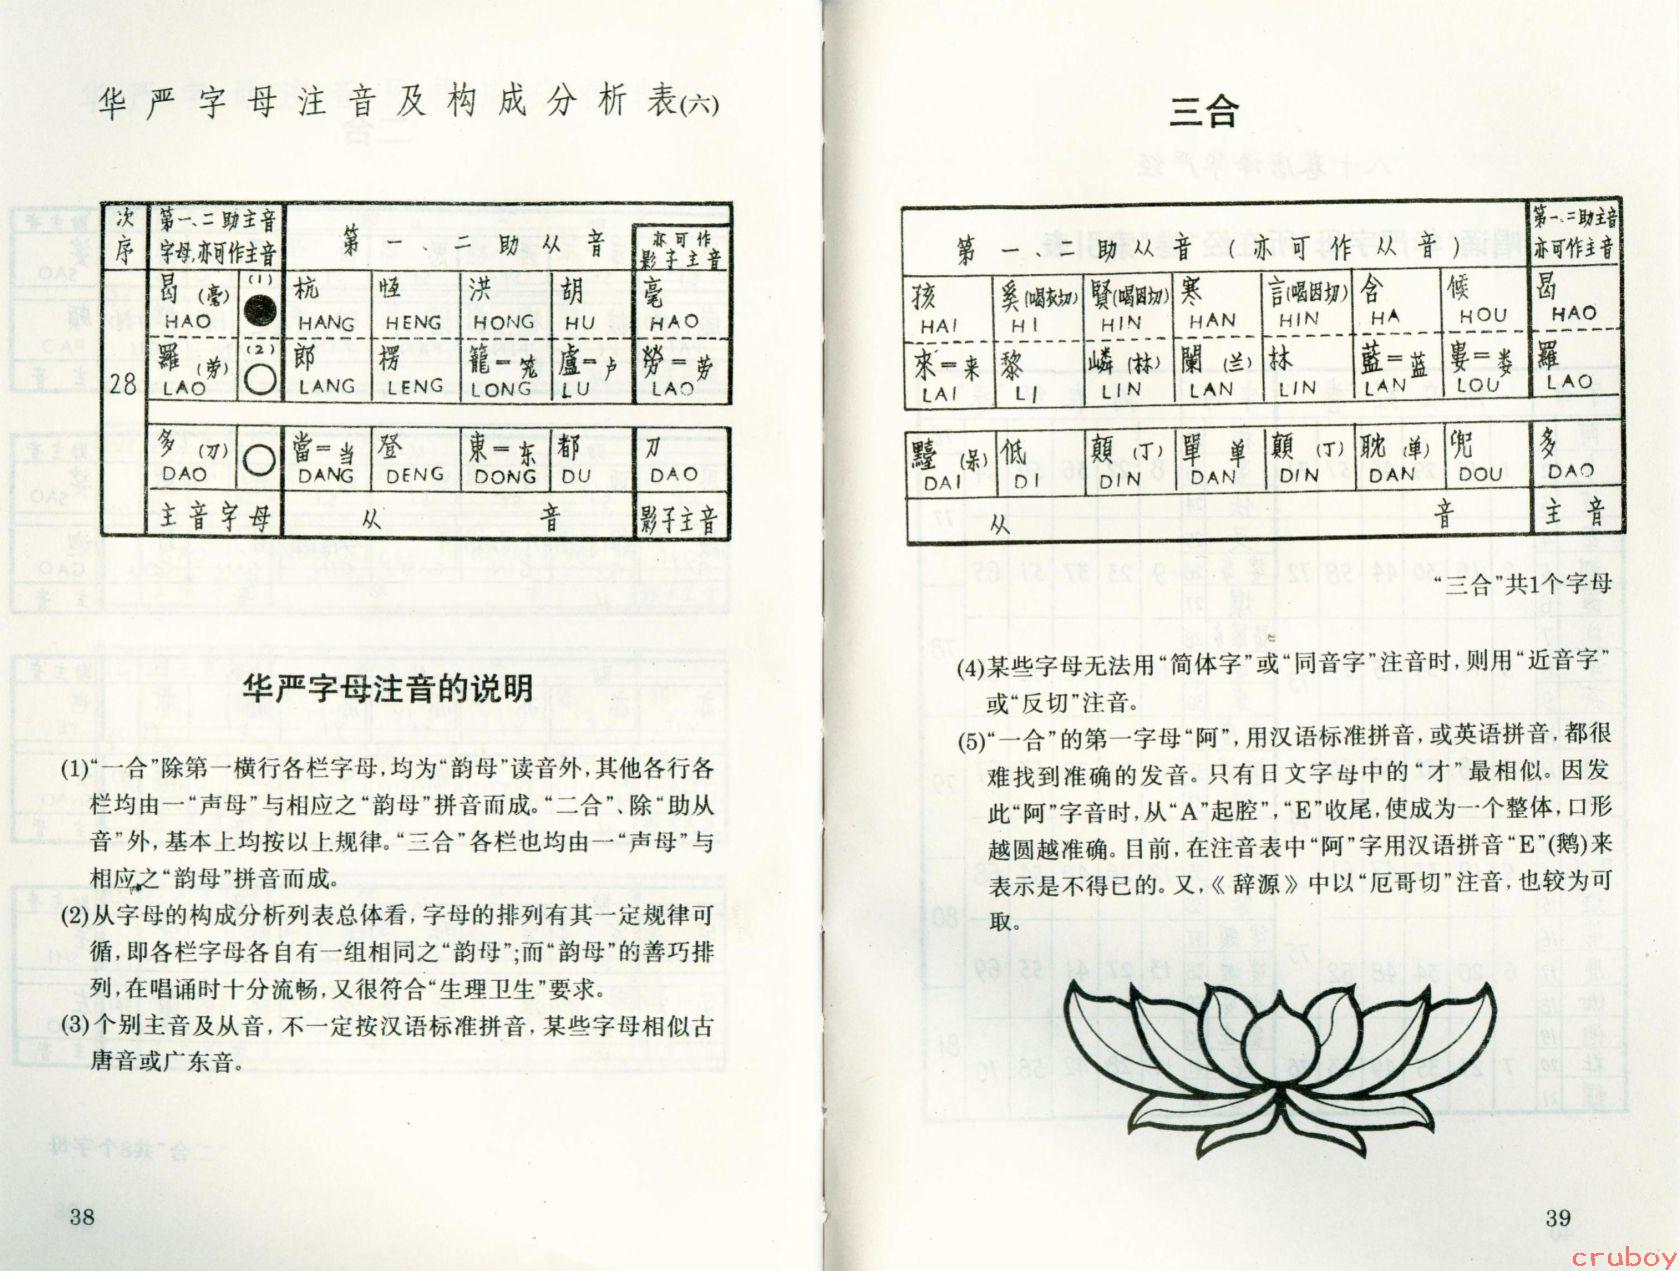 华严字母注音及构成分析表(六)
次序
第一、二助主音
字母,亦可作主音
第一、二助从音
亦可作
影子主音
28
曷(毫) (1) 杭 恒 洪 胡 毫
HAO HANG HENG HONG HU HAO
羅(劳) (2) 郎 楞 籠=笼 盧=卢 勞=劳
LAO LANG LENG LONG LU LAO
多(刀) 當=当 登 東=东 都 刀
DAO DANG DENG DONG DU DAO
主音字母 从 音 影子主音
华严字母注音的说明
(1)“一合”除第一横行各栏字母,均为“韵母”读音外,其他各行各
栏均由一“声母”与相应之“韵母”拼音而成。“二合”、除“助从
音”外,基本上均按以上规律。“三合”各栏也均由一“声母”与
相应之“韵母”拼音而成。
(2)从字母的构成分析列表总体看,字母的排列有其一定规律可
循,即各栏字母各自有一组相同之“韵母”;而“韵母”的善巧排
列,在唱诵时十分流畅,又很符合“生理卫生”要求。
(3)个别主音及从音,不一定按汉语标准拼音,某些字母相似古
唐音或广东音。
38
三合
第一、二助从音(亦可作从音)
第一、二助主音
亦可作主音
孩 奚(喝衣切) 賢(喝因切) 寒 言(喝因切) 含 候 曷
HAI HI HIN HAN HIN HA HOU HAO
來=来 黎 嶙(林) 闌(兰) 林 藍=蓝 婁=娄 羅
LAI LI LIN LAN LIN LAN LOU LAO
(呆) 低 顛(丁) 單 单 顛(丁) 耽(单) 兜 多
DAI DI DIN DAN DIN DAN DOU DAO
从 音 主音
“三合”共1个字母
(4)某些字母无法用“简体字”或“同音字”注音时,则用“近音字”
或“反切”注音。
(5)“一合”的第一字母“阿”,用汉语标准拼音,或英语拼音,都很
难找到准确的发音。只有日文字母中的“才”最相似。因发
此“阿”字音时,从“A”起腔”,“E”收尾,使成为一个整体,口形
越圆越准确。目前,在注音表中“阿”字用汉语拼音“E”(鹅)来
表示是不得已的。又,《辞源》中以“厄哥切”注音,也较为可
取。
39
cruboy